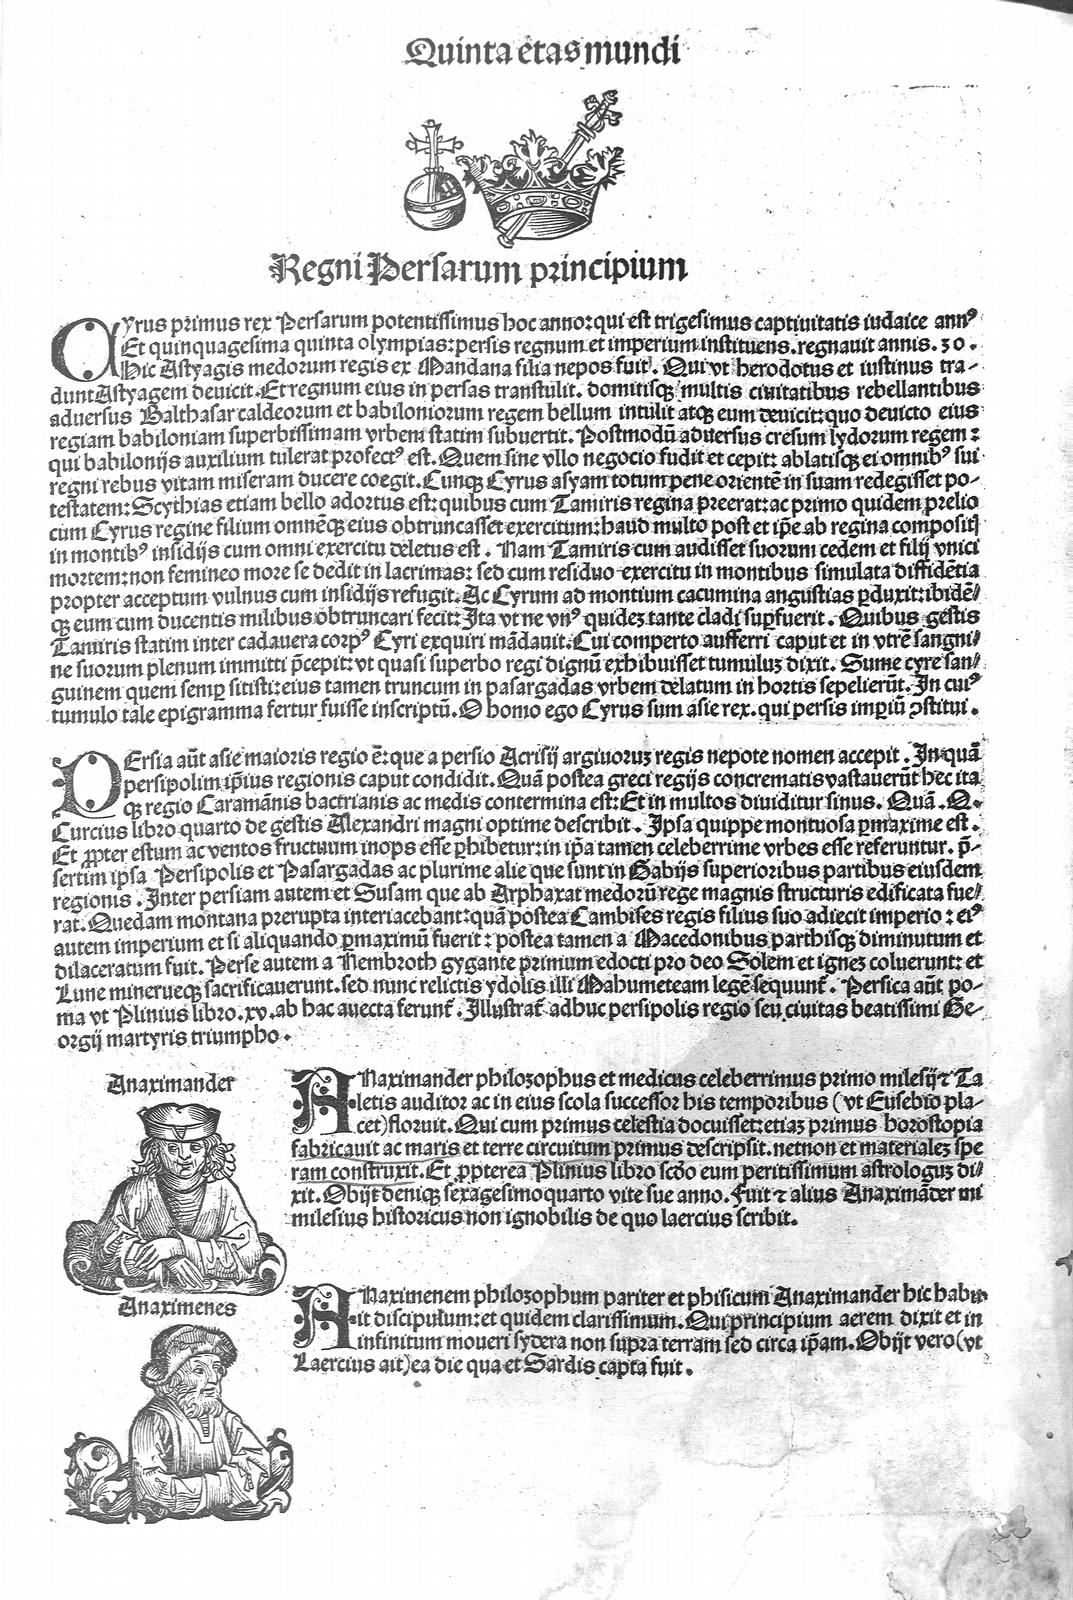 Quinta etas mundi
Regni Persarum principium
CYrus primus rex Persarum potentissimus hoc anno: qui est trigesimus captiuitatis iudaice annꝰ
Et quinquagesima quinta olympias: persis regnum et imperium instituens. regnauit annis. 30.
Hic Astyagis medorum regis ex Mandana filia nepos fuit. Qui vt herodotus et iustinus tra-
dunt Astyagem deuicit. Et regnum eius in persas transtulit. domitisqꝫ multis ciuitatibus rebellantibus
aduersus Balthasar caldeorum et babiloniorum regem bellum intulit atqꝫ eum deuicit: quo deuicto eius
regiam babiloniam superbissimam vrbem statim subuertit. Postmodū aduersus cresum lydorum regem:
qui babilonijs auxilium tulerat profectꝰ est. Quem sine vllo negocio fudit et cepit: ablatisqꝫ ei omnibꝰ sui
regni rebus vitam miseram ducere coegit. Cunqꝫ Cyrus asyam totum pene orientē in suam redegisset po-
testatem: Scythias etiam bello adortus est: quibus cum Tamiris regina preerat: ac primo quidem prelio
cum Cyrus regine filium omnēqꝫ eius obtruncasset exercitum: haud multo post et ip̄e ab regina compositis
in montibꝰ insidijs cum omni exercitu deletus est. Nam Tamiris cum audisset suorum cedem et filij vnici
mortem: non femineo more se dedit in lacrimas: sed cum residuo exercitu in montibus simulata diffidētia
propter acceptum vulnus cum insidijs refugit. Ac Cyrum ad montium cacumina angustias ꝑduxit: ibidē/
qꝫ eum cum ducentis milibus obtruncari fecit: Ita vt ne vnꝰ quidez tante cladi suꝑfuerit. Quibus gestis
Tamiris statim inter cadauera corpꝰ Cyri exquiri mādauit. Cui comperto aufferri caput et in vtrē sangni/
ne suorum plenum immitti p̄cepit: vt quasi superbo regi dignū exhibuisset tumuluz dixit. Sume cyre san/
guinem quem semꝑ sitisti: eius tamen truncum in pasargadas vrbem delatum in hortis sepelierūt. In cuiꝰ
tumulo tale epigramma fertur fuisse inscriptū. O homo ego Cyrus sum asie rex. qui persis imꝑiū ꝯstitui.
PErsia aūt asie maioris regio ē: que a persio Acrisij argiuoruz regis nepote nomen accepit. In quā
persipolim ip̄ius regionis caput condidit. Quā postea greci regijs concrematis vastauerūt hec ita
qꝫ regio Caramānis bactrianis ac medis contermina est: Et in multos diuiditur sinus. Quā. Q.
Curcius libro quarto de gestis Alexandri magni optime describit. Ipsa quippe montuosa ꝑmaxime est.
Et ꝓpter estum ac ventos fructuum inops esse ꝑhibetur: in ip̄a tamen celeberrime vrbes esse referuntur. p̄-
sertim ipsa Persipolis et Pasargadas ac plurime alie que sunt in Gabijs superioribus partibus eiusdem
regionis. Inter persiam autem et Susam que ab Arphaxat medorū rege magnis structuris edificata fue/
rat. Quedam montana prerupta interiacebant: quā postea Cambises regis filius suo adiecit imperio: eiꝰ
autem imperium et si aliquando ꝑmaximū fuerit: postea tamen a Macedonibus parthisqꝫ diminutum et
dilaceratum fuit. Perse autem a Nembroth gygante primum edocti pro deo Solem et ignez coluerunt: et
Lune mineruecqꝫ sacrificauerunt. sed nunc relictis ydolis illi Mahumeteam legē sequunt̄. Persica aūt po-
ma vt Plinius libro. xv. ab hac auecta ferunt̄. Illustrat̄ adhuc persipolis regio seu ciuitas beatissimi Ge-
orgij martyris triumpho.
Anaximander
ANaximander philozophus et medicus celeberrimus primo milesij ⁊ Ta
letis auditor ac in eius scola successor his temporibus (vt Eusebio pla-
cet) floruit. Qui cum primus celestia docuisset: etiaz primus horostopia
fabricauit ac maris et terre circuitum primus descripsit. netnon et materialez spe
ram construxit. Et ꝓpterea Plinius libro scd̄o eum peritissimum astrologuz di/
xit. Obijt deniqꝫ sexagesimoquarto vite sue anno. Fuit ⁊ alius Anaximāder mi
milesius historicus non ignobilis de quo laercius scribit.
Anaximenes
ANaximenem philozophum pariter et phisicum Anaximander hic habu
it discipulum: et quidem clarissimum. Qui principium aerem dixit et in
infinitum moueri sydera non supra terram sed circa ip̄am. Obijt vero (vt
Laercius ait) ea die qua et Sardis capta fuit.